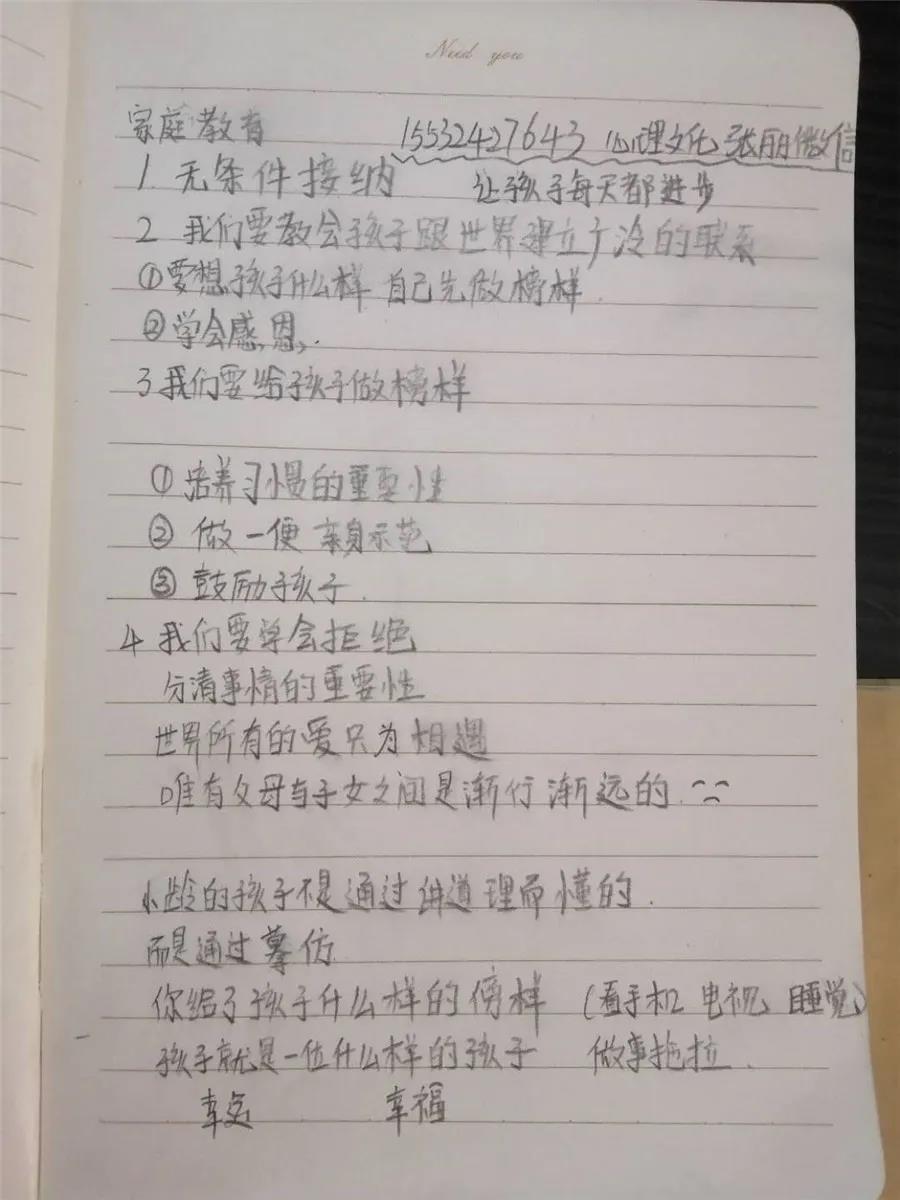 Need you
家庭教育 15532427643 心理文化 张丽微信
1. 无条件接纳 让孩子每天都进步
2 我们要教会孩子跟世界建立广泛的联系
①要想孩子什么样 自己先做榜样.
②学会感恩,.
3 我们要给孩子做榜样
① 培养习惯的重要性
② 做一便 亲身示范
③ 鼓励孩子.
4 我们要学会拒绝
分清事情的重要性
世界所有的爱只为相遇
唯有父母与子女之间是渐行渐远的.
小龄的孩子不是通过讲道理而懂的.
而是通过摹仿
你给了孩子什么样的傍样 (看手机 电视 睡觉)
孩子就是一位什么样的孩子 做事拖拉.
幸运 幸福